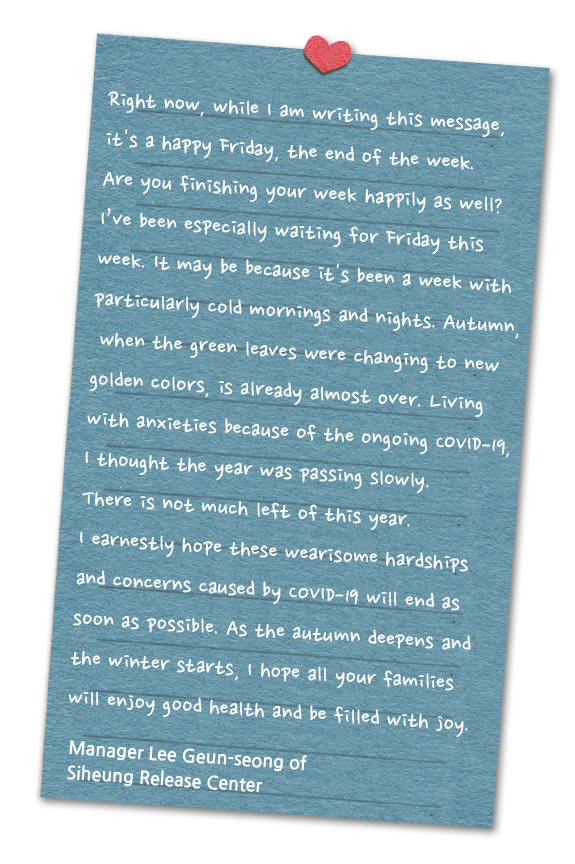 Right now, while I am writing this message,
it's a happy Friday, the end of the week.
Are you finishing your week happily as well?
I've been especially waiting for Friday this
week. It may be because it's been a week with
particularly cold mornings and nights. Autumn,
when the green leaves were changing to new
golden colors, is already almost over. Living
with anxieties because of the ongoing COVID-19,
I thought the year was passing slowly.
There is not much left of this year.
I earnestly hope these wearisome hardships
and concerns caused by COVID-19 will end as
soon as possible. As the autumn deepens and
the winter starts, I hope all your families
will enjoy good health and be filled with joy.
Manager Lee Geun-seong of
Siheung Release Center